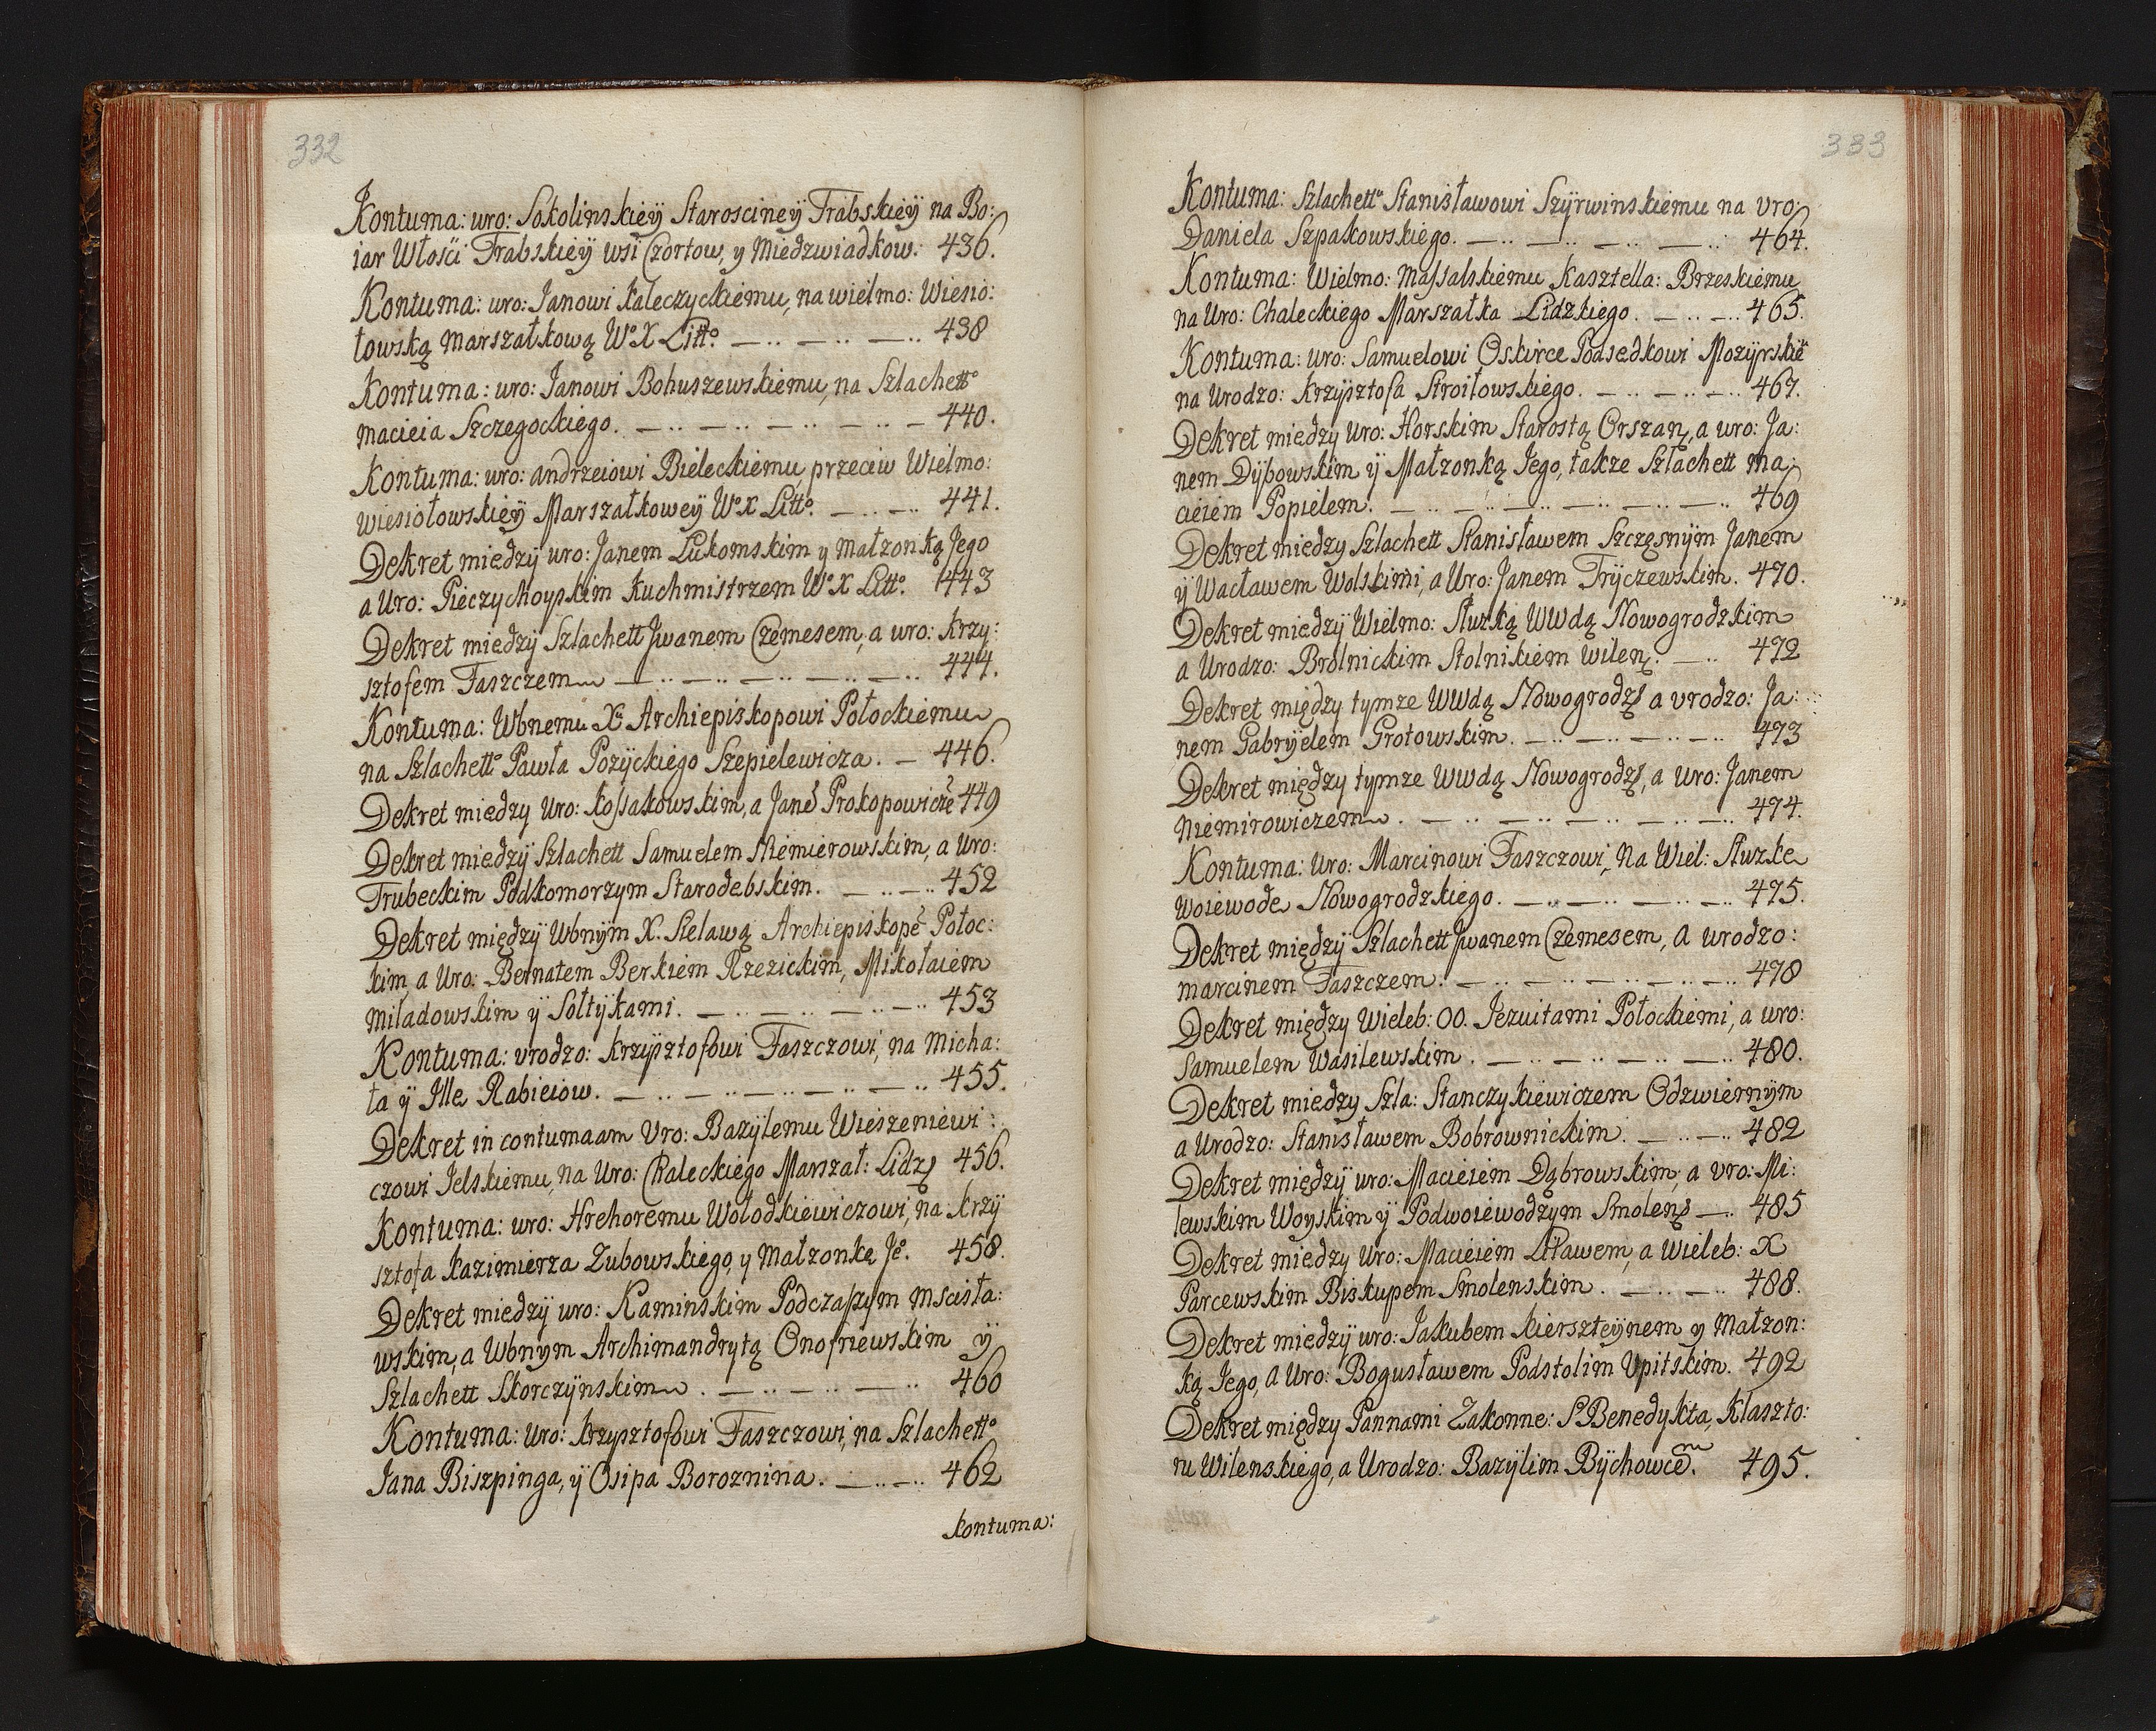 332
Kontuma: uro: Sokolinskiey Starosciney Trabskiey na Bo:
iar Włosci Trabskiey wsi Czortow, y Miedzwiadkow: 436.
Kontuma: uro: Janowi Kaleczyckiemu, na wielmo: Wiesio:
łowską Marszałkową Wº X Littº. — .. — .. — .. 438
Kontuma: uro: Janowi Bohuszewskiemu, na Szlachettº
Macieia Szczegockiego. — .. — .. — .. — .. — 440.
Kontuma: uro: andrzeiowi Bieleckiemu, przeciw Wielmo:
wiesiołowskiey Marszałkowey Wº X Littº. — .. — .. 441.
Dekret miedzy uro: Janem Lukomskim y Małzonką Jego
a Uro: Pieczychoyskim Kuchmistrzem Wº X Littº. 443
Dekret miedzy Szlachett Jwanem Czemesem, a uro: Krzy:
sztofem Faszczem — .. — .. — .. — .. — .. 444.
Kontuma: Wbnemu Xu Archiepiskopowi Połockiemu
na Szlachettº Pawła Pozyckiego Szepielewicza. — 446.
Dekret miedzy Uro: Kossakowskim, a Jane Prokopowicze 449
Dekret miedzy Szlachett Samuelem Niemierowskim, a Uro:
Trubeckim Podkomorzym Starodebskim. — .. — .. 452
Dekret między Wbnym X. Sielawą Archiepiskope Połoc:
kim, a Uro: Bernatem Berkiem Rzezickim, Mikołaiem
Miładowskim y Sołtykami. — .. — .. — .. — .. 453
Kontuma: vrodzo: Krzysztofowi Faszczowi, na Micha:
ła y Jlle Rabieiow. — .. — .. — .. — .. — .. 455.
Dekret in contumaam Vro: Bazylemu Wieszeniewi:
czowi Jelskiemu, na Uro: Chaleckiego Marszał: Lidz 456.
Kontuma: uro: Hrehoremu Wołodkiewiczowi, na Krzy
sztofa Kazimierza Zubowskiego, y Małzonkę Jº. 458.
Dekret miedzy uro: Kaminskim Podczaszym Mscisła:
wskim, a Wbnym Archimandrytą Onofriewskim y
Szlachett Skorczynskim. — .. — .. — .. 460
Kontuma: Uro: Krzysztofowi Faszczowi, na Szlachettº
Jana Biszpinga, y Osipa Boroznina. — .. — .. 462
Kontuma:
333
Kontuma: Szlachettu Stanisławowi Szyrwinskiemu na vro:
Daniela Szpakowskiego. — .. — .. — .. — .. 464.
Kontuma: Wielmo: Massalskiemu Kasztella: Brzeskiemu
na Uro: Chaleckiego Marszałka Lidzkiego. — .. — .. 465.
Kontuma: uro: Samuelowi Oskirce Podsedkowi Mozyrskie
na Urodzo: Krzysztofa Stroiłowskiego. — .. — .. — .. 467.
Dekret miedzy Uro: Horskim Starostą Orszan, a uro: Ja:
nem Dybowskim y Małzonką Jego, takze Szlachett Ma:
cieiem Popielem. — .. — .. — .. — .. — .. 469
Dekret miedzy Szlachett Stanisławem Szczęsnym Janem
y Wacławem Wolskimi, a Uro: Janem Tryczewskim. 470.
Dekret miedzy Wielmo: Słuzką WWdą Nowogrodzkim
a Urodzo: Brolnickim Stolnikiem Wilen. — .. 472
Dekret między tymze WWdą Nowogrodz a vrodzo: Ja:
nem Gabryelem Grotowskim. — .. — .. — .. — .. 473
Dekret między tymze WWdą Nowogrodz, a Uro: Janem
Niemirowiczem. — .. — .. — .. — .. — .. 474.
Kontuma: Uro: Marcinowi Faszczowi, Na Wiel: Słuzke
Woiewode Nowogrodzkiego. — .. — .. — .. — .. 475.
Dekret między Szlachett Jwanem Czemesem, a urodzo:
Marcinem Faszczem. — .. — .. — .. — .. — .. 478
Dekret między Wieleb: OO. Jezuitami Połockiemi, a uro:
Samuelem Wasilewskim. — .. — .. — .. — .. 480.
Dekret miedzy Szla: Stanczykiewiczem Odzwiernym
a Urodzo: Stanisławem Bobrownickim. — .. — .. 482
Dekret między uro: Macieiem Dąbrowskim, a vro: Mi:
lewskim Woyskim y Podwoiewodzym Smolen — .. 485
Dekret miedzy Uro: Macieiem Litawem, a Wieleb: X
Parcewskim Biskupem Smolenskim. — .. — .. 488.
Dekret miedzy uro: Jakubem Kierszteynem y Małzon:
ką Jego, a Uro: Bogusławem Podstolim Upitskim. 492
Dekret między Pannami Zakonne: S Benedykta, Klaszto:
ru Wilenskiego, a Urodzo: Bazylim Bychowcem. 495.